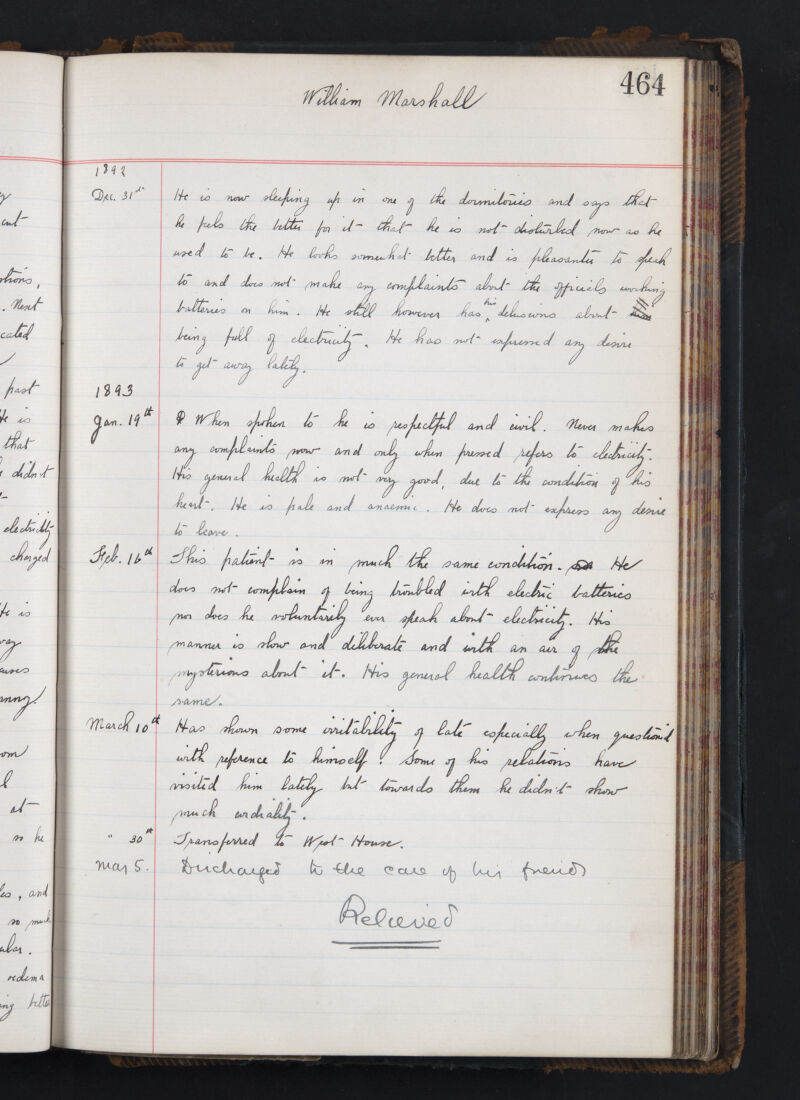 464
William Marshall
1892
Dec. 31st He is now sleeping up in one of the dormitories and says that
he feels the better for it - that he is not disturbed now as he
used to be. He looks somewhat better and is pleasanter to speak
to and does not make any complaints about the officials working
batteries on him. He still however has his delusions about
being full of electricity. He has not expressed any desire
to get away lately.
1893
Jan. 19th When spoken to he is respectful and civil. Never makes
any complaints now and only when pressed refers to electricity.
His general health is not very good, due to the condition of his
heart. He is pale and anaemic. He does not express any desire
to leave.
Feb. 16th This patient is in much the same condition. He
does not complain of being troubled with electric batteries
nor does he voluntarily ever speak about electricity. His
manner is slow and deliberate and with an air of the
mysterious about it. His general health continues the
same.
March 10th Has shown some irritability of late especially when question'd
with reference to himself. Some of his relations have
visited him lately but towards them he didn't show
much cordiality.
" 30th Transferred to West House.
May 5. Discharged to the care of his friends
Relieved
ent
. Next
cated
past
He is
that
didn't
electricity
charged
He is
at
so he
, and
so much
oedema
ing better